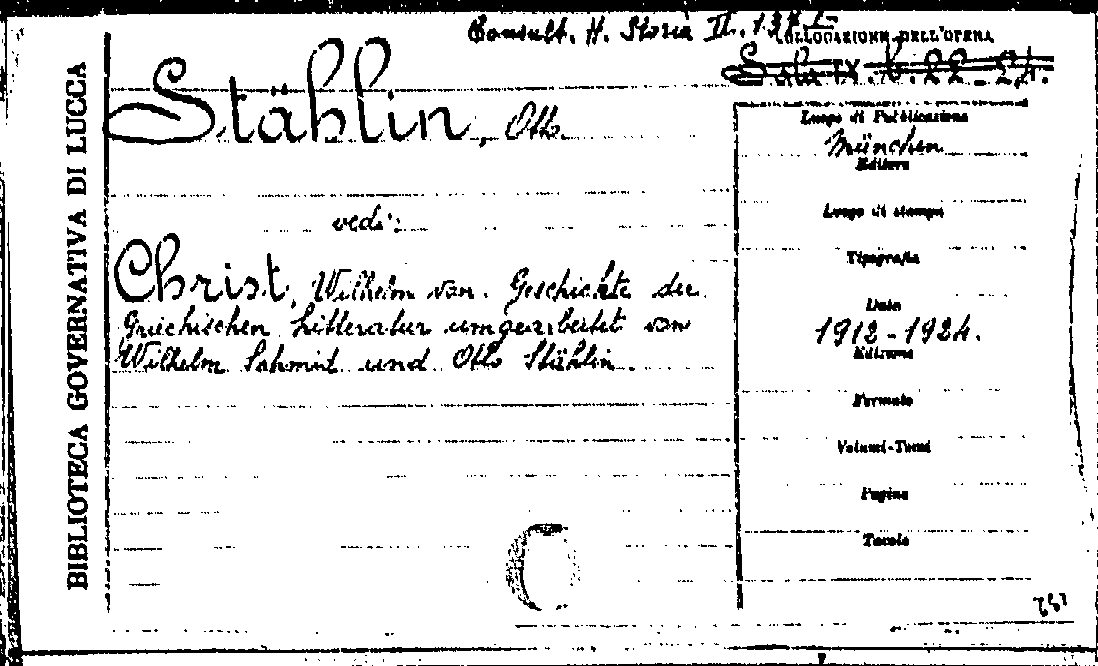 Consult. H. Storia II.
COLLOCAZIONE DELL'OPERA
Sala IX. N. 22-24.
BIBLIOTECA GOVERNATIVA DI LUCCA
Stählin, Otto
vedi:
Christ, Wilhelm von. Geschichte der
Griechischen Litteratur umgearbeitet von
Wilhelm Schmid und Otto Stählin.
Luogo di Pubblicazione
München
Editore
Luogo di stampa
Tipografia
Data
1912-1924.
Edizione
Formato
Volumi-Tomi
Pagine
Tavole